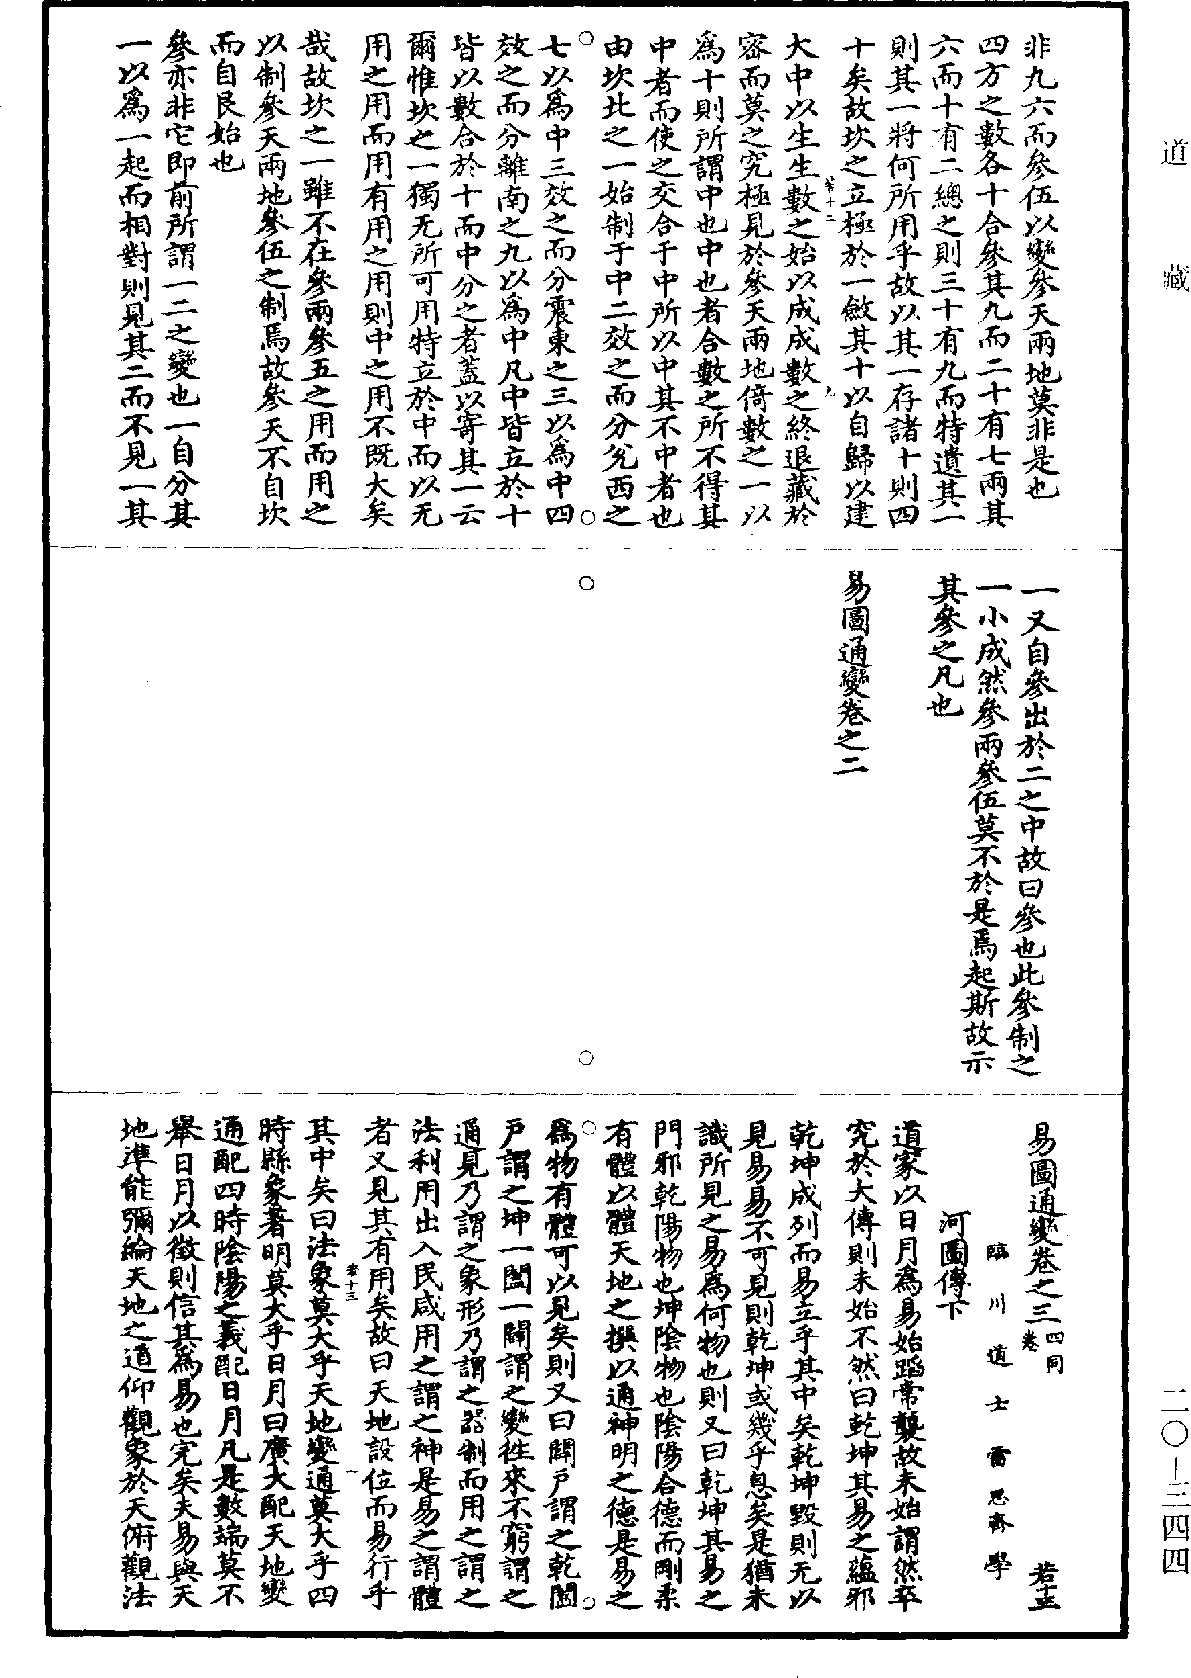 道藏
二〇-三四四
非九六而參伍以變參天兩地莫非是也
四方之數各十合參其九而二十有七兩其
六而十有二總之則三十有九而特遺其一
則其一將何所用乎故以其一存諸十則四
十矣故坎之立極於一斂其十以自歸以建
大中以生生數之始以成成數之終退藏於
密而莫之究極見於參天兩地倚數之一以
為十則所謂中也中也者合數之所不得其
中者而使之交合于中所以中其不中者也
由坎北之一始制于中二效之而分兌西之
七以為中三效之而分震東之三以為中四
效之而分離南之九以為中凡中皆立於十
皆以數合於十而中分之者蓋以寄其一云
爾惟坎之一獨无所可用特立於中而以无
用之用而用有用之用則中之用不既大矣
哉故坎之一雖不在參兩參五之用而用之
以制參天兩地參伍之制焉故參天不自坎
而自艮始也
參亦非它即前所謂一二之變也一自分其
一以為一起而相對則見其二而不見一其
一又自參出於二之中故曰參也此參制之
一小成然參兩參伍莫不於是焉起斯故示
其參之凡也
易圖通變卷之二
易圖通變卷之三 四同卷 若五
臨川道士雷思齊學
河圖傳下
道家以日月為易始蹈常襲故未始謂然卒
究於大傳則未始不然曰乾坤其易之蘊邪
乾坤成列而易立乎其中矣乾坤毀則无以
見易易不可見則乾坤或幾乎息矣是猶未
識所見之易為何物也則又曰乾坤其易之
門邪乾陽物也坤陰物也陰陽合德而剛柔
有體以體天地之撰以通神明之德是易之
為物有體可以見矣則又曰闢戶謂之乾闔
戶謂之坤一闔一闢謂之變往來不窮謂之
通見乃謂之象形乃謂之器制而用之謂之
法利用出入民咸用之謂之神是易之謂體
者又見其有用矣故曰天地設位而易行乎
其中矣曰法象莫大乎天地變通莫大乎四
時縣象著明莫大乎日月曰廣大配天地變
通配四時陰陽之義配日月凡是數端莫不
舉日月以徵則信其為易也完矣夫易與天
地準能彌綸天地之道仰觀象於天俯觀法